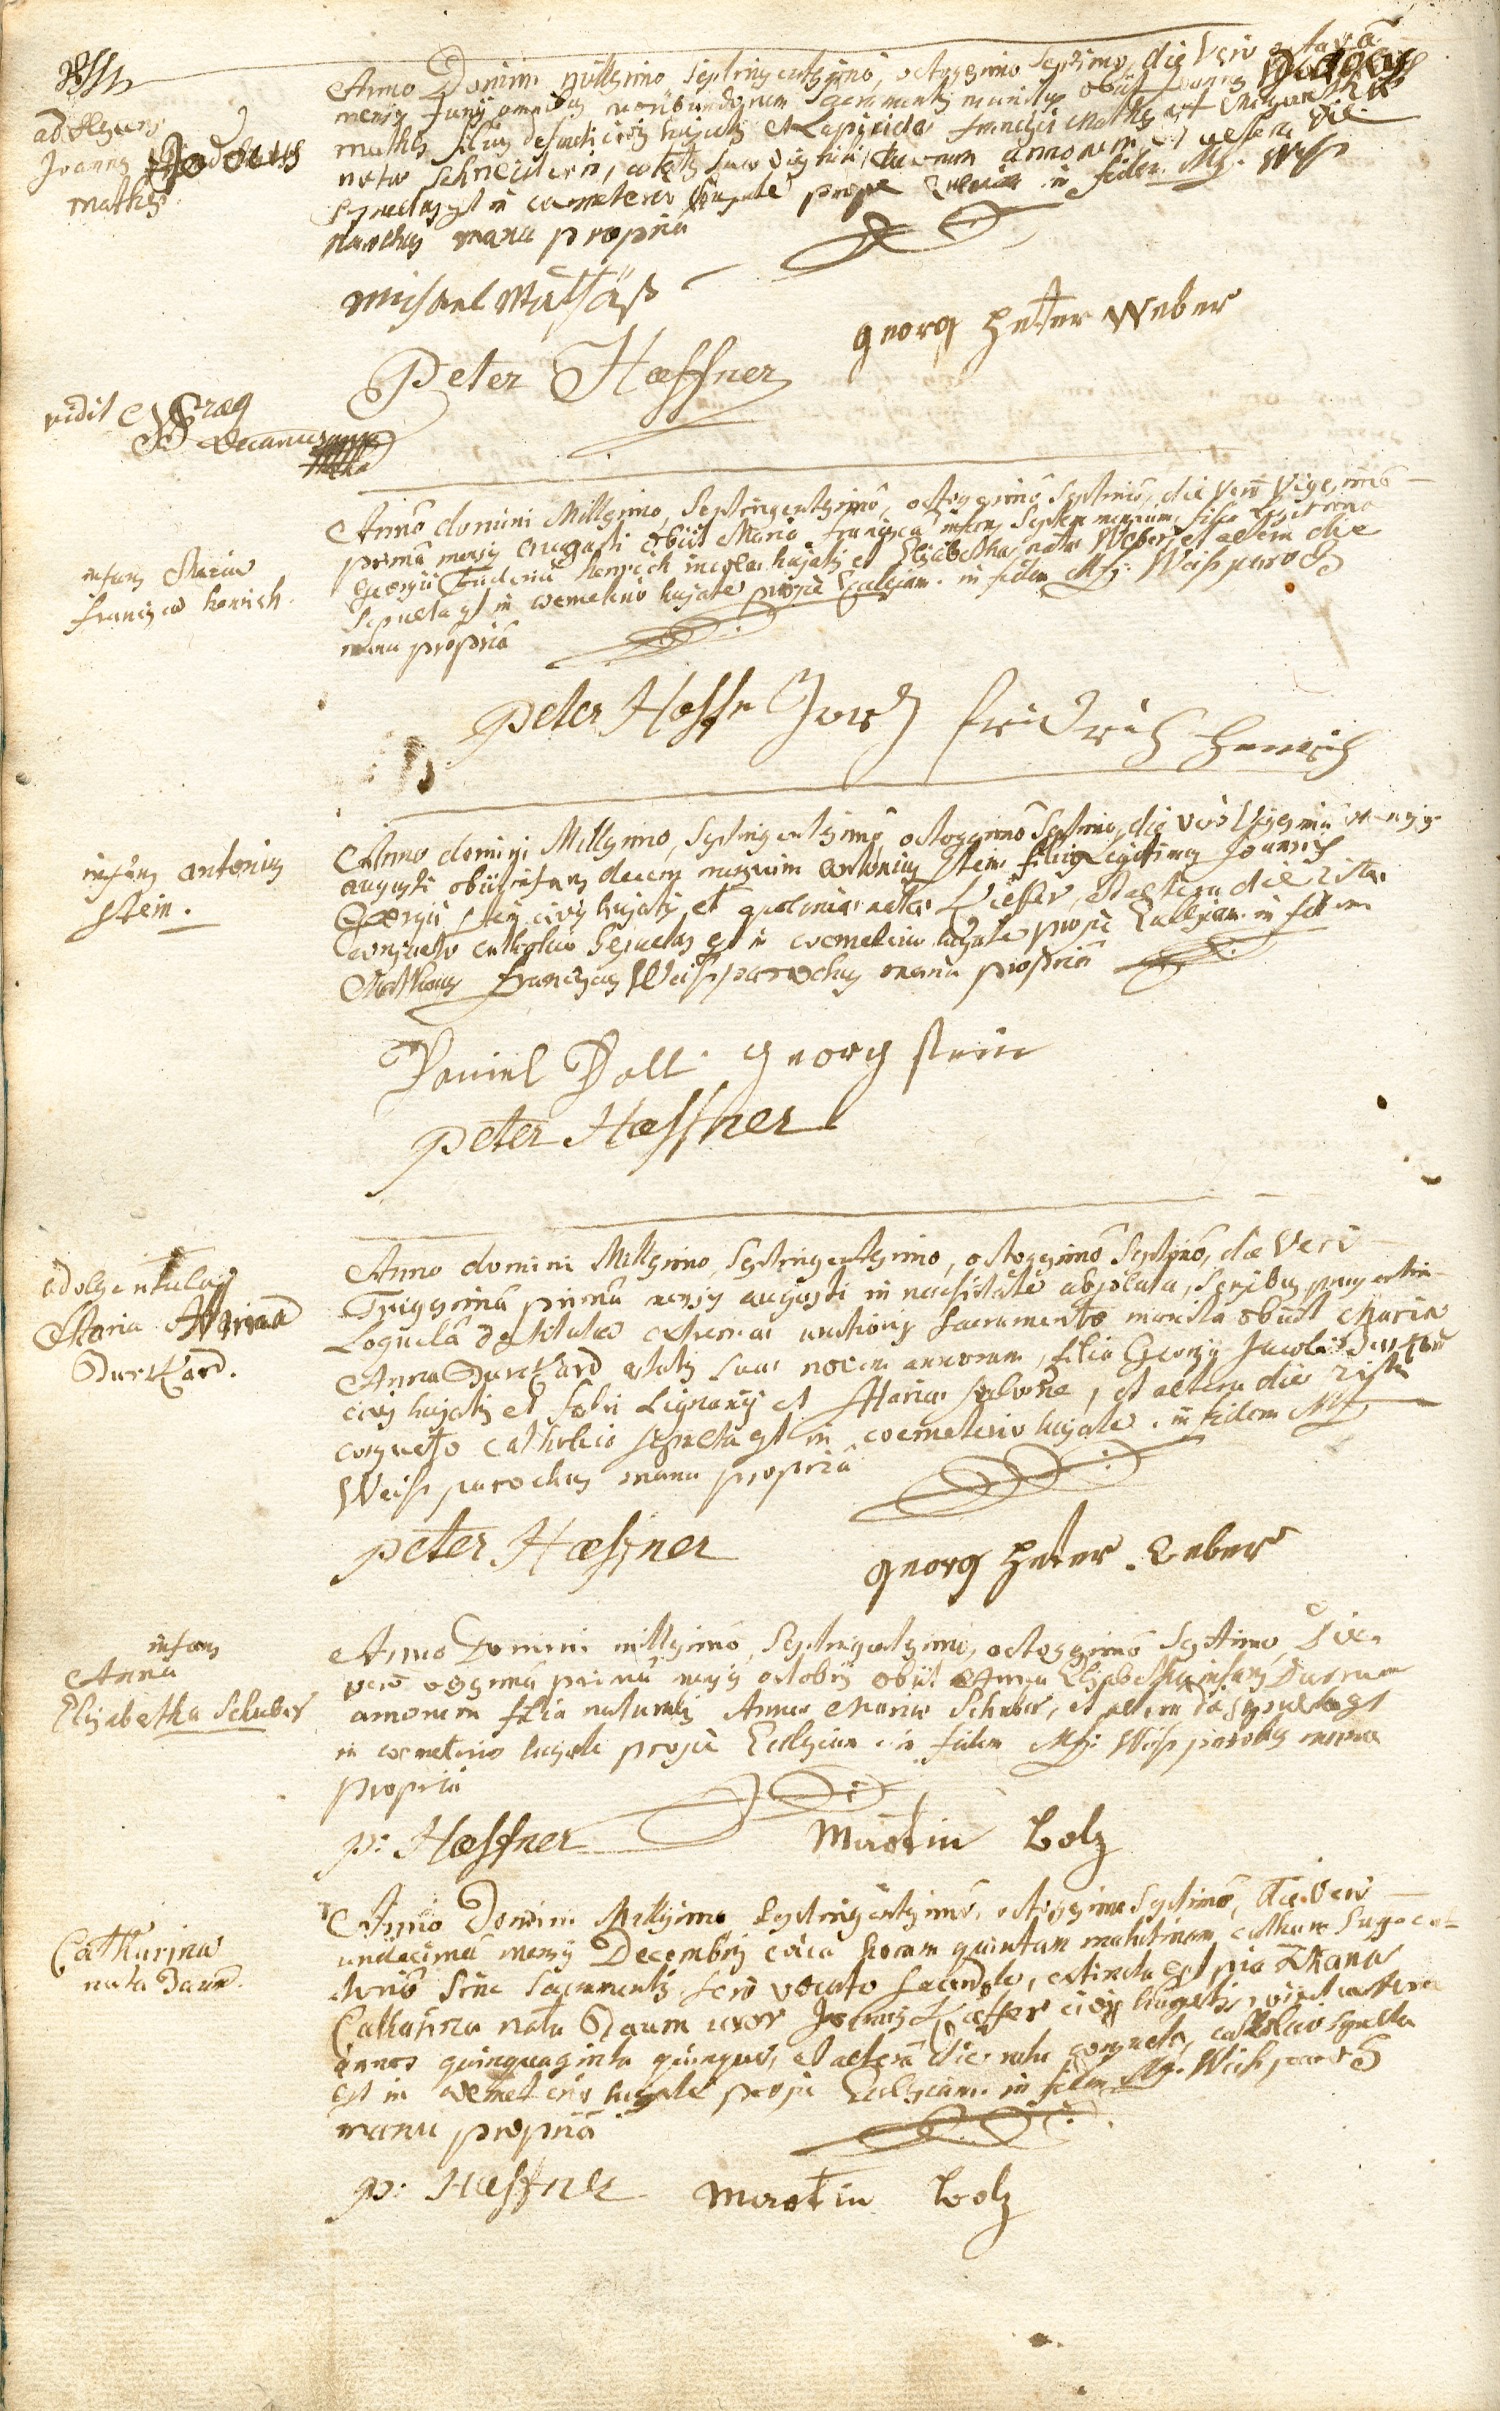 adolescens
Joannes Jodocus
Mathes
Anno Domini Millesimo Septingentesimo, octogesimo Septimo, die vero octavâ
mensis Junij omnibus moribundorum Sacramentis munitus obiit Joannes Jodocus
mathes filius defuncti civis hujatis et Lapicida Francisci Mathes et Margaretha
nata Schneiderin, aetatis suae viginti annorum et altera die
Sepultus est in coemeterio hujate prope Ecclesiam in fidem Mf. Weiss
parochus manu propria
Michael Mathäß
georg Peter Weber
Peter Haeffner
vidit
Decanus
infans Maria
francisca henrich.
Anno domini Millesimo, Septingentesimo, octogesimo Septimo, die vero Vigesimâ
primâ mensis Augusti obiit Maria francisca infans Septem mensium, filia Legitima
Georgii Friderici Henrich incolae hujatis et Elisabetha nata Weber, et altera die
Sepulta est in coemeterio hujate prope Ecclesiam. in fidem Mf: Weiss paroch
manu propriâ
Peter Haeffn Jorg fridrich Henrich
infans antonius
Stein.
Anno domini Millesimo, Septingentesimo, octogesimo Septimo, die vero Vigesimâ mensis
augusti obiit infans decem mensium antonius Stein filius Legitimus Joannis
Georgii Stein civis hujatis, et apolonia nata Kieffer, et altera die ritu
consueto catholico Sepultus est in coemeterio hujate prope Ecclesiam. in fidem
Mathaeus franciscus Weiss parochus manu propriâ
Daniel Doll. georg stein
Peter Haeffner
adolescentula
Maria Anna
Burckard.
Anno domini Millesimo, Septingentesimo, octogesimo Septimo, die Vero
Trigesimâ primâ mensis augusti in necessitate absoluta,
Loquelâ destituta extremae unctionis Sacramento munita obiit Maria
Anna Burckard aetatis suae novem annorum, filia Georgij Jacobi Burckard
civis hujatis et fabri Lignarij et Maria, et altera die ritu
consueto catholico sepulta est in coemeterio hujate. in fidem Mf
Weiss parochus manu propriâ
Peter Haeffner
georg Peter Weber
infans
Anna
Elisabetha Schuber
Anno Domini millesimo, Septingentesimo, octogesimo Septimo, Die
vero vigesimâ primâ mensis octobris obiit Anna Elisabetha infans Duorum
annorum filia naturalis Anna Maria Schuber, et altera die sepulta est
in coemeterio hujate prope Ecclesiam in fidem Mf: Weiss parochus manu
propriâ
p: Haeffner Martin Bolz
Catharina
nata Daum.
Anno Domini Millesimo Septingentesimo, octogesimo Septimo, Die Vero
undecimâ mensis Decembris circa horam quintam matutinam
sine Sacramentis sero vocato Sacerdote, extincta est pia
Catharina nata Daum uxor Joannis Kaeffer civis hujatis, vixit
annos quinquaginta quinque, et altera die ritu consueto, catholico Sepulta
est in coemeterio hujate prope Ecclesiam. in fidem Mf. Weiss paroch
manu propriâ
p: Haeffner Martin Bolz